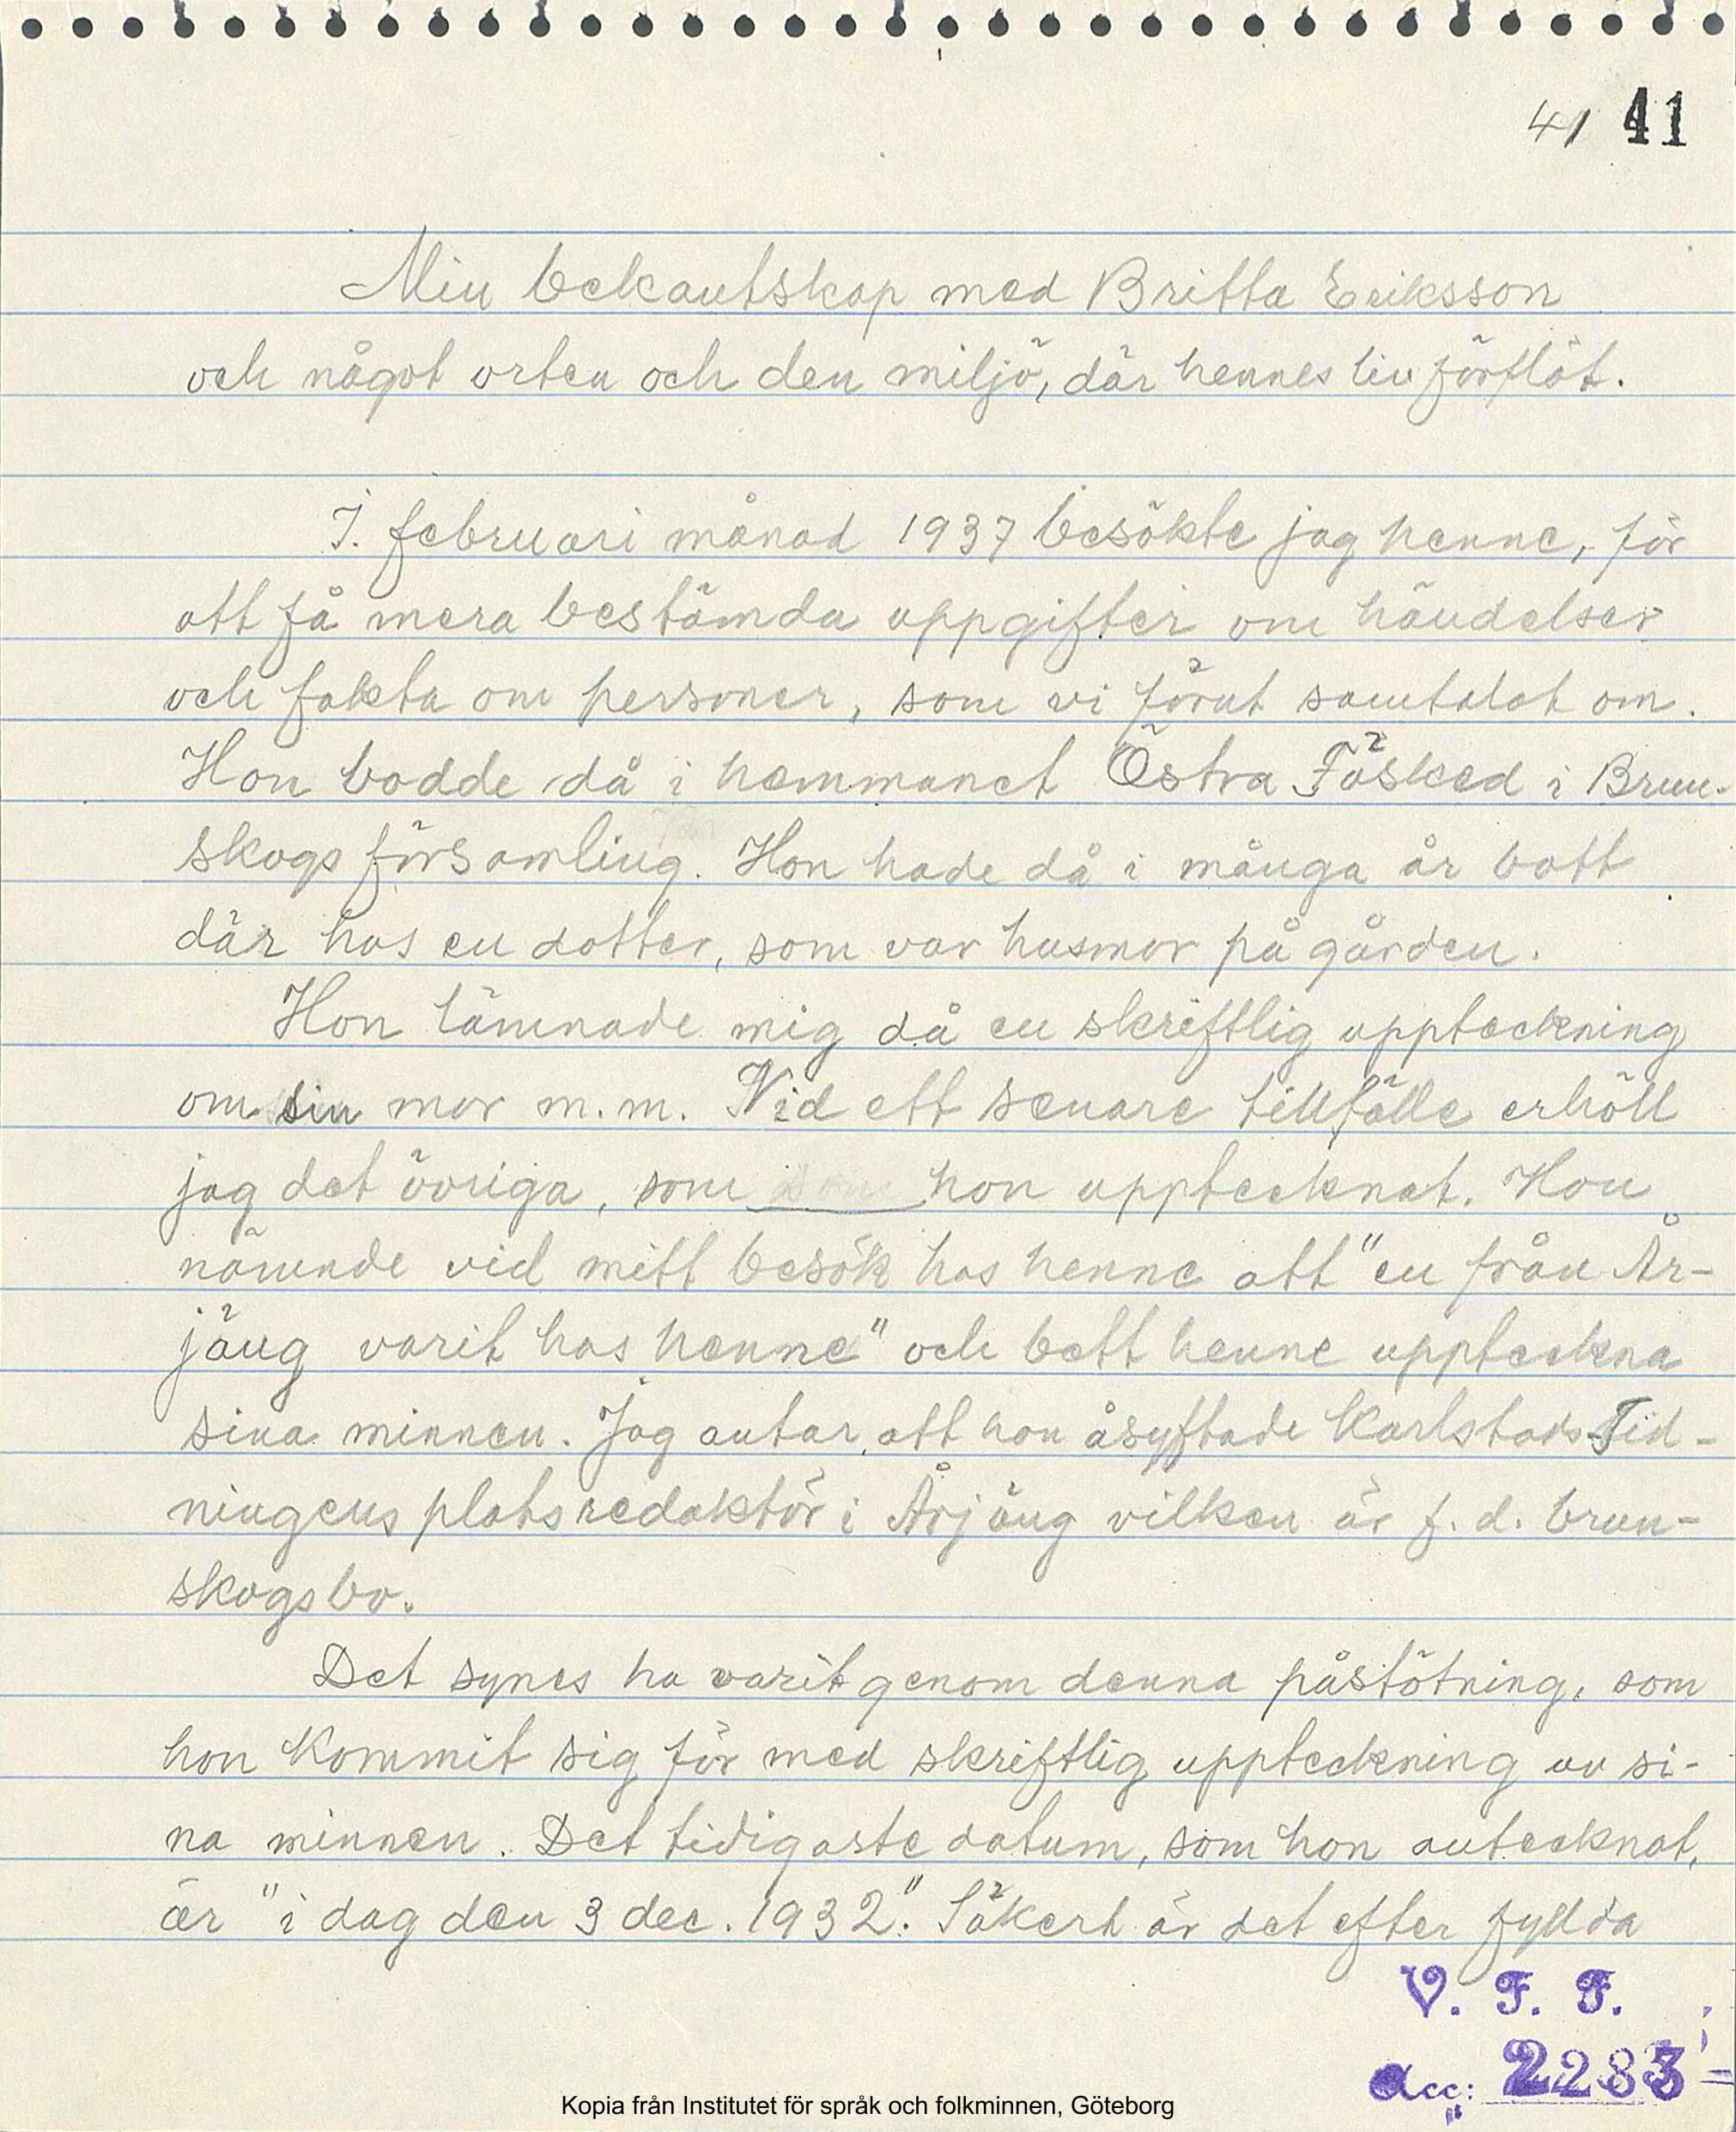 41 41
Min bekantskap med Britta Eriksson
och något orten och den miljö, där hennes liv förflöt.
I. februari månad 1937 besökte jag henne, för
att få mera bestämda uppgifter om händelser
och fakta om personer, som vi förut samtalat om.
Hon bodde då i hemmanet Östra Fösked i Brun-
skogs församling. Hon hade då i många år bott
där hos en dotter, som var husmor på gården.
Hon lämnade mig då en skriftlig uppteckning
om sin mor m.m. Vid ett senare tillfälle erhöll
jag det övriga, som hon upptecknat. Hon
nämnde vid mitt besök hos henne att "en från År-
jäng varit hos henne" och bett henne uppteckna
sina minnen. Jag antar, att hon åsyftade Karlstads Tid-
ningens platsredaktör i Årjäng vilken är f. d. brun-
skogsbo.
Det synes ha varit genom denna påstötning, som
hon kommit sig för med skriftlig uppteckning av si-
na minnen. Det tidigaste datum, som hon antecknat,
är "i dag den 3 dec. 1932". Säkert är det efter fyllda
V. F. F.
Acc: 2283
Kopia från Institutet för språk och folkminnen, Göteborg